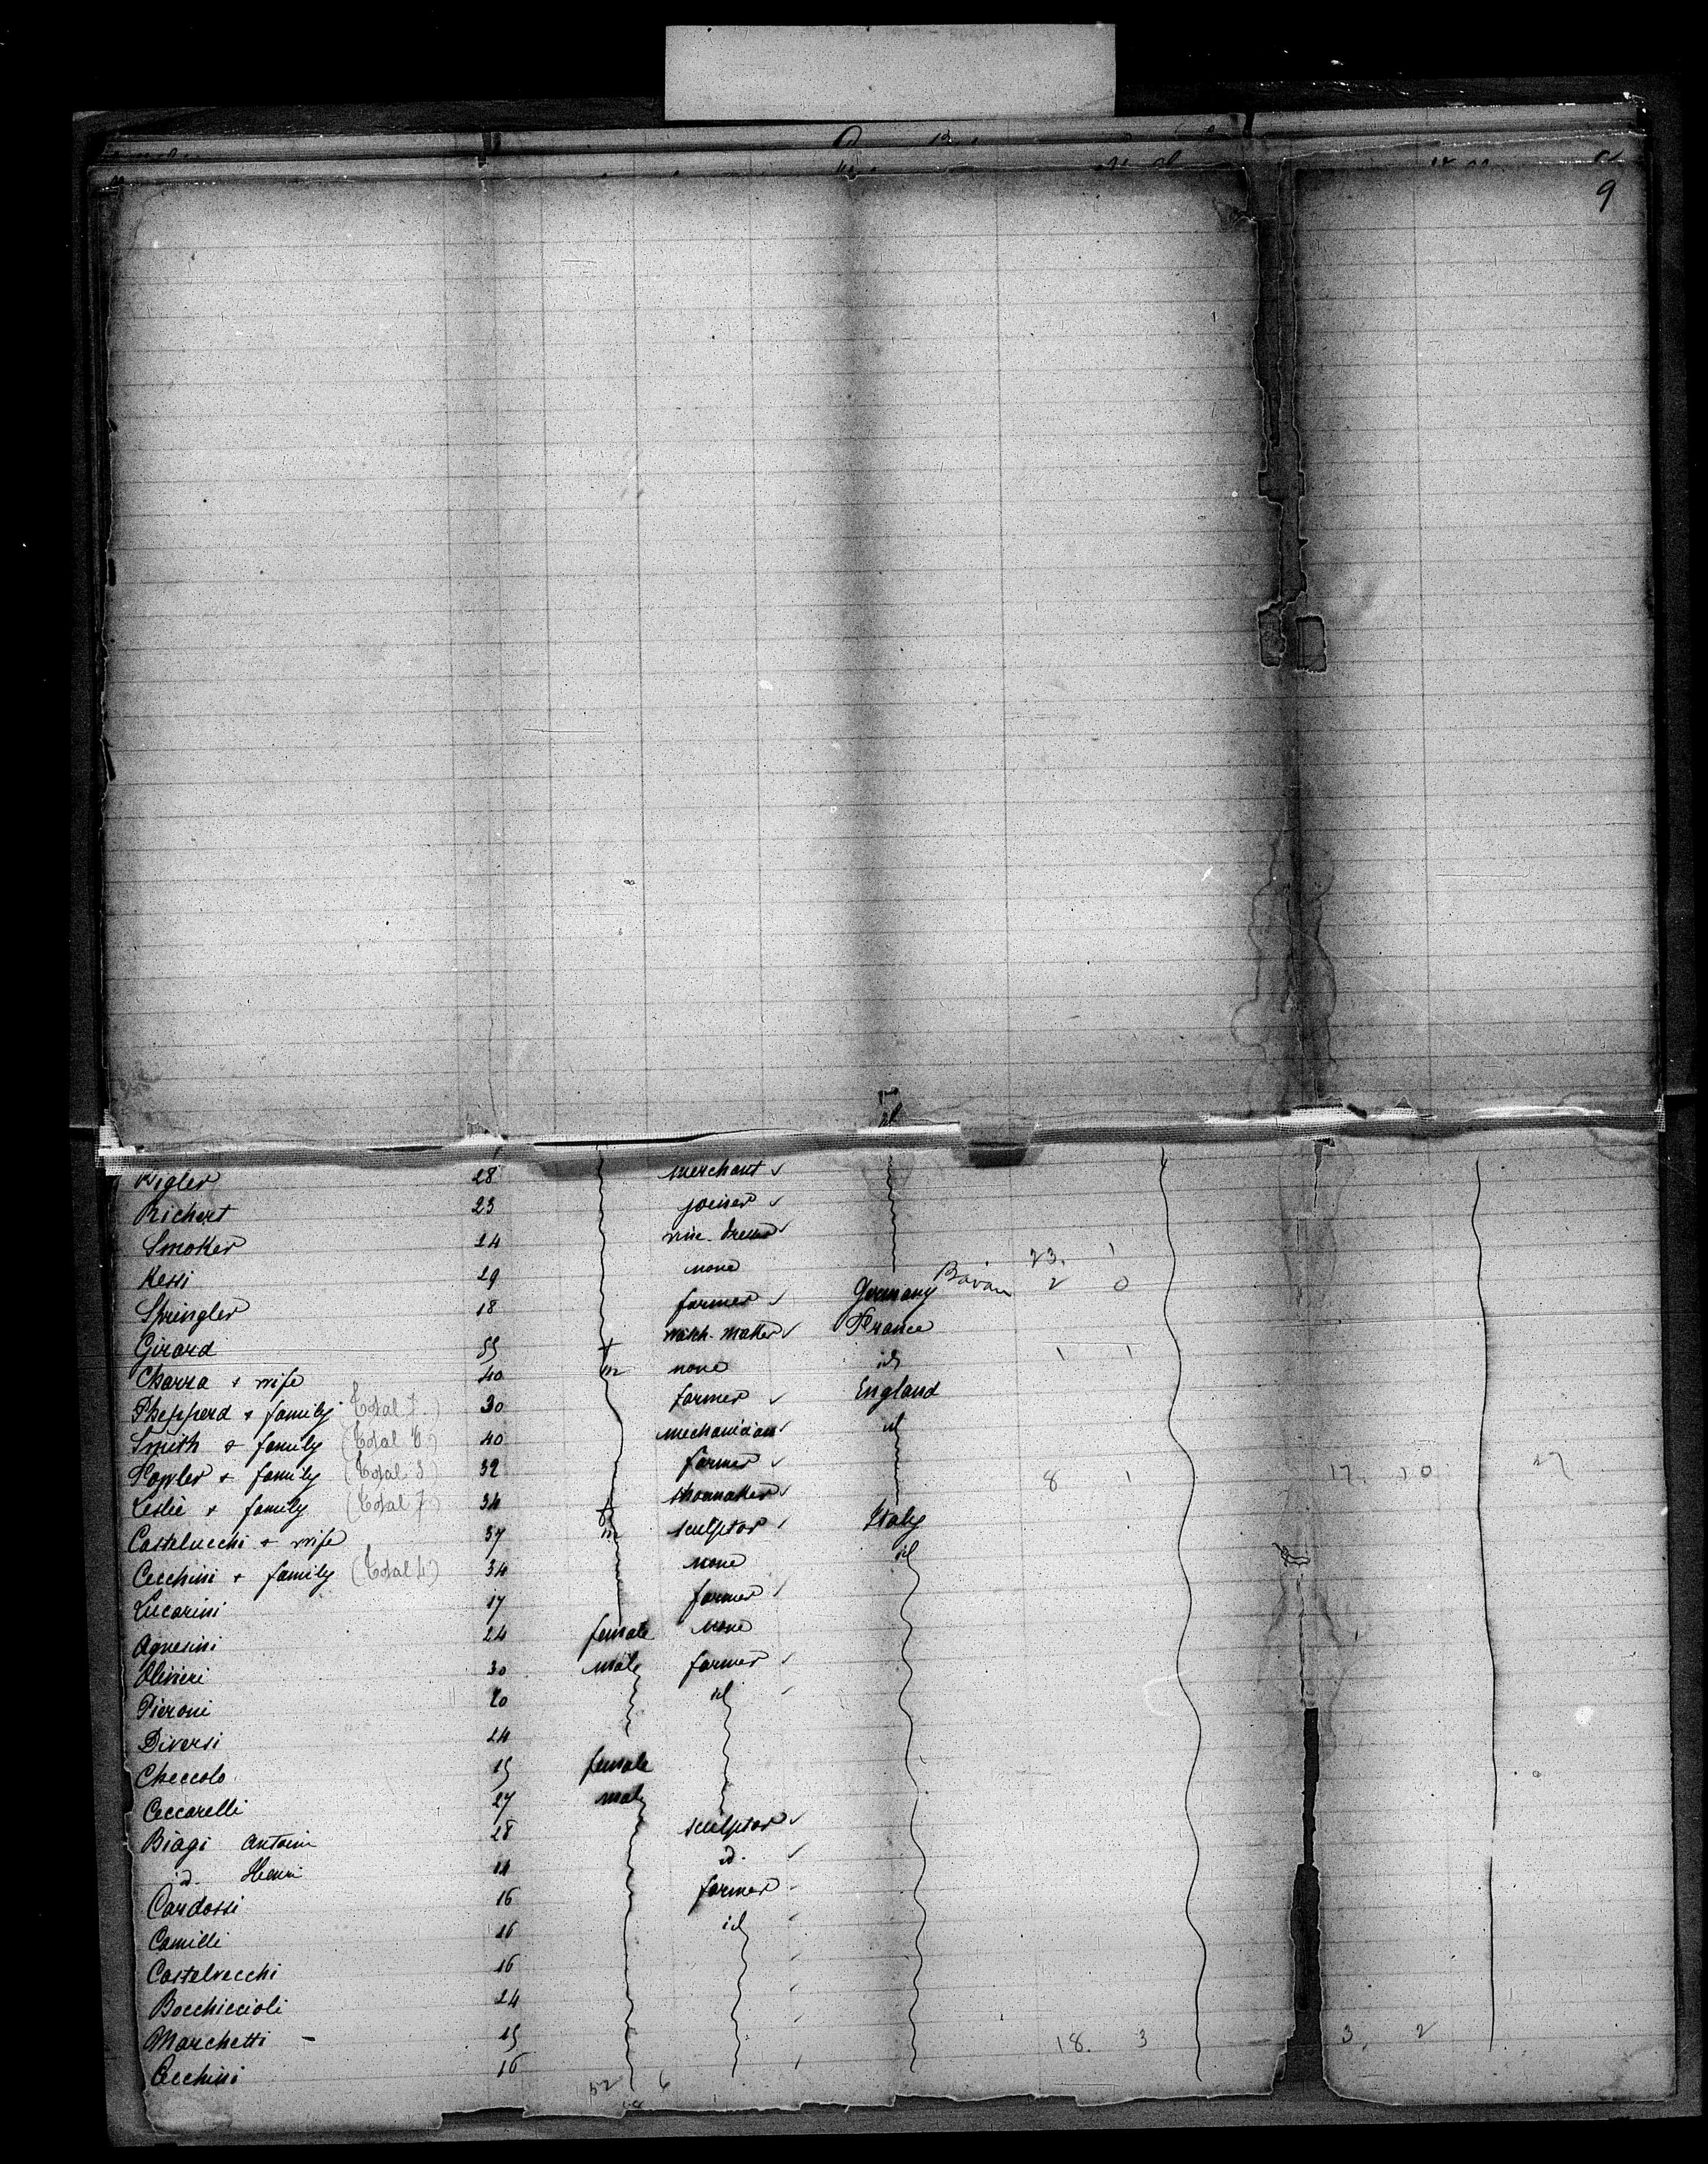 9
id
Bigler 28 merchant
Richert 23 joiner
Smoker 24 vine-dresser
Kessi 29 none 23. 1
Springler 18 farmer Germany Bavar 2 0
Girard 55 watch-maker France
Charra + wife 40 m none id 1 1
Shepperd + family (Total 7) 30 farmer England
Smith + family (Total 6) 40 mechanician id
Fowler + family (Total 3) 32 farmer 8 1 17. 10
Leslie + family (Total 7) 34 shoemaker
Castelucchi + wife 37 sculptor Italy
Cecchini + family (Total 4) 34 none id
Lucarini 17 farmer
Agnesini 24 female none
Olivieri 30 male farmer
Pieroni 20 id
Diversi 24
Checcolo 15 female
Ceccarelli 27 male
Biagi Antoin 28 sculptor
id. Henri 14 id.
Cardossi 16 farmer
Camilli 16 id
Castelvecchi 16
Bocchiccioli 24
Marchetti - 15 18. 3 3. 2
Cecchini 16
52 6